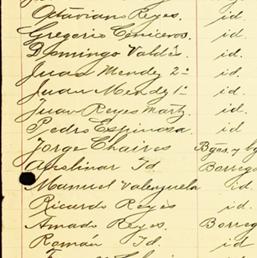 Octaviano Reyes. id.
Gregorio Ceniceros. id.
Domingo Valdés. id.
Juan Mendez 2º id.
Juan Mendez 1º id.
Juan Reyes Martz. id.
Pedro Espinosa id.
Jorge Chaires Bgñs. y bg
Apolinar Id Borrego
Manuel Valenzuela id.
Ricardo Reyes id
Amado Reyes. Borreg
Román Id. id